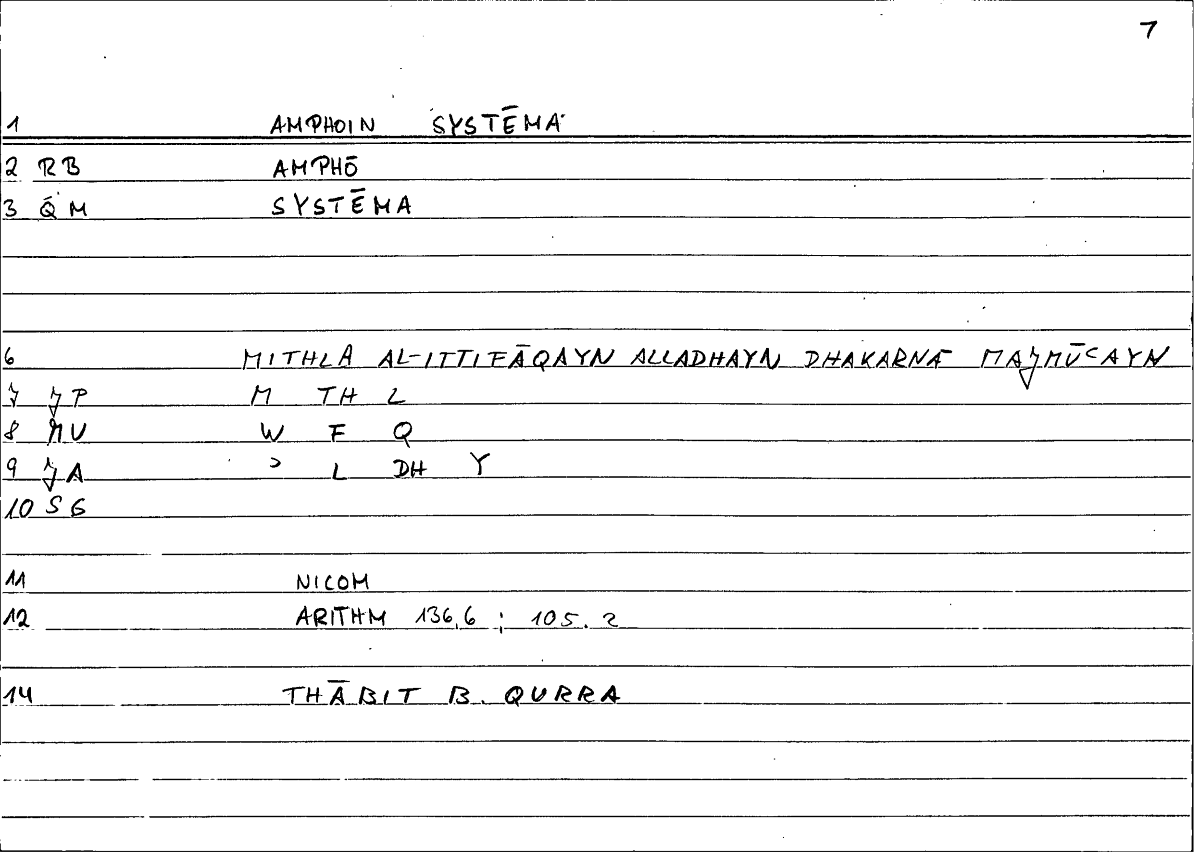 7
1 AMPHOIN SYSTĒMA
2 RB AMPHŌ
3 QM SYSTĒMA
6 MITHLĀ AL-ITTIFĀQAYN ALLADHAYN DHAKARNĀ MAJMŪʿAYN
7 JP M TH L
8 NU W F Q
9 JA ʾ L DH Y
10 SG
11 NICOM
12 ARITHM 136,6 ; 105.2
14 THĀBIT B. QURRA